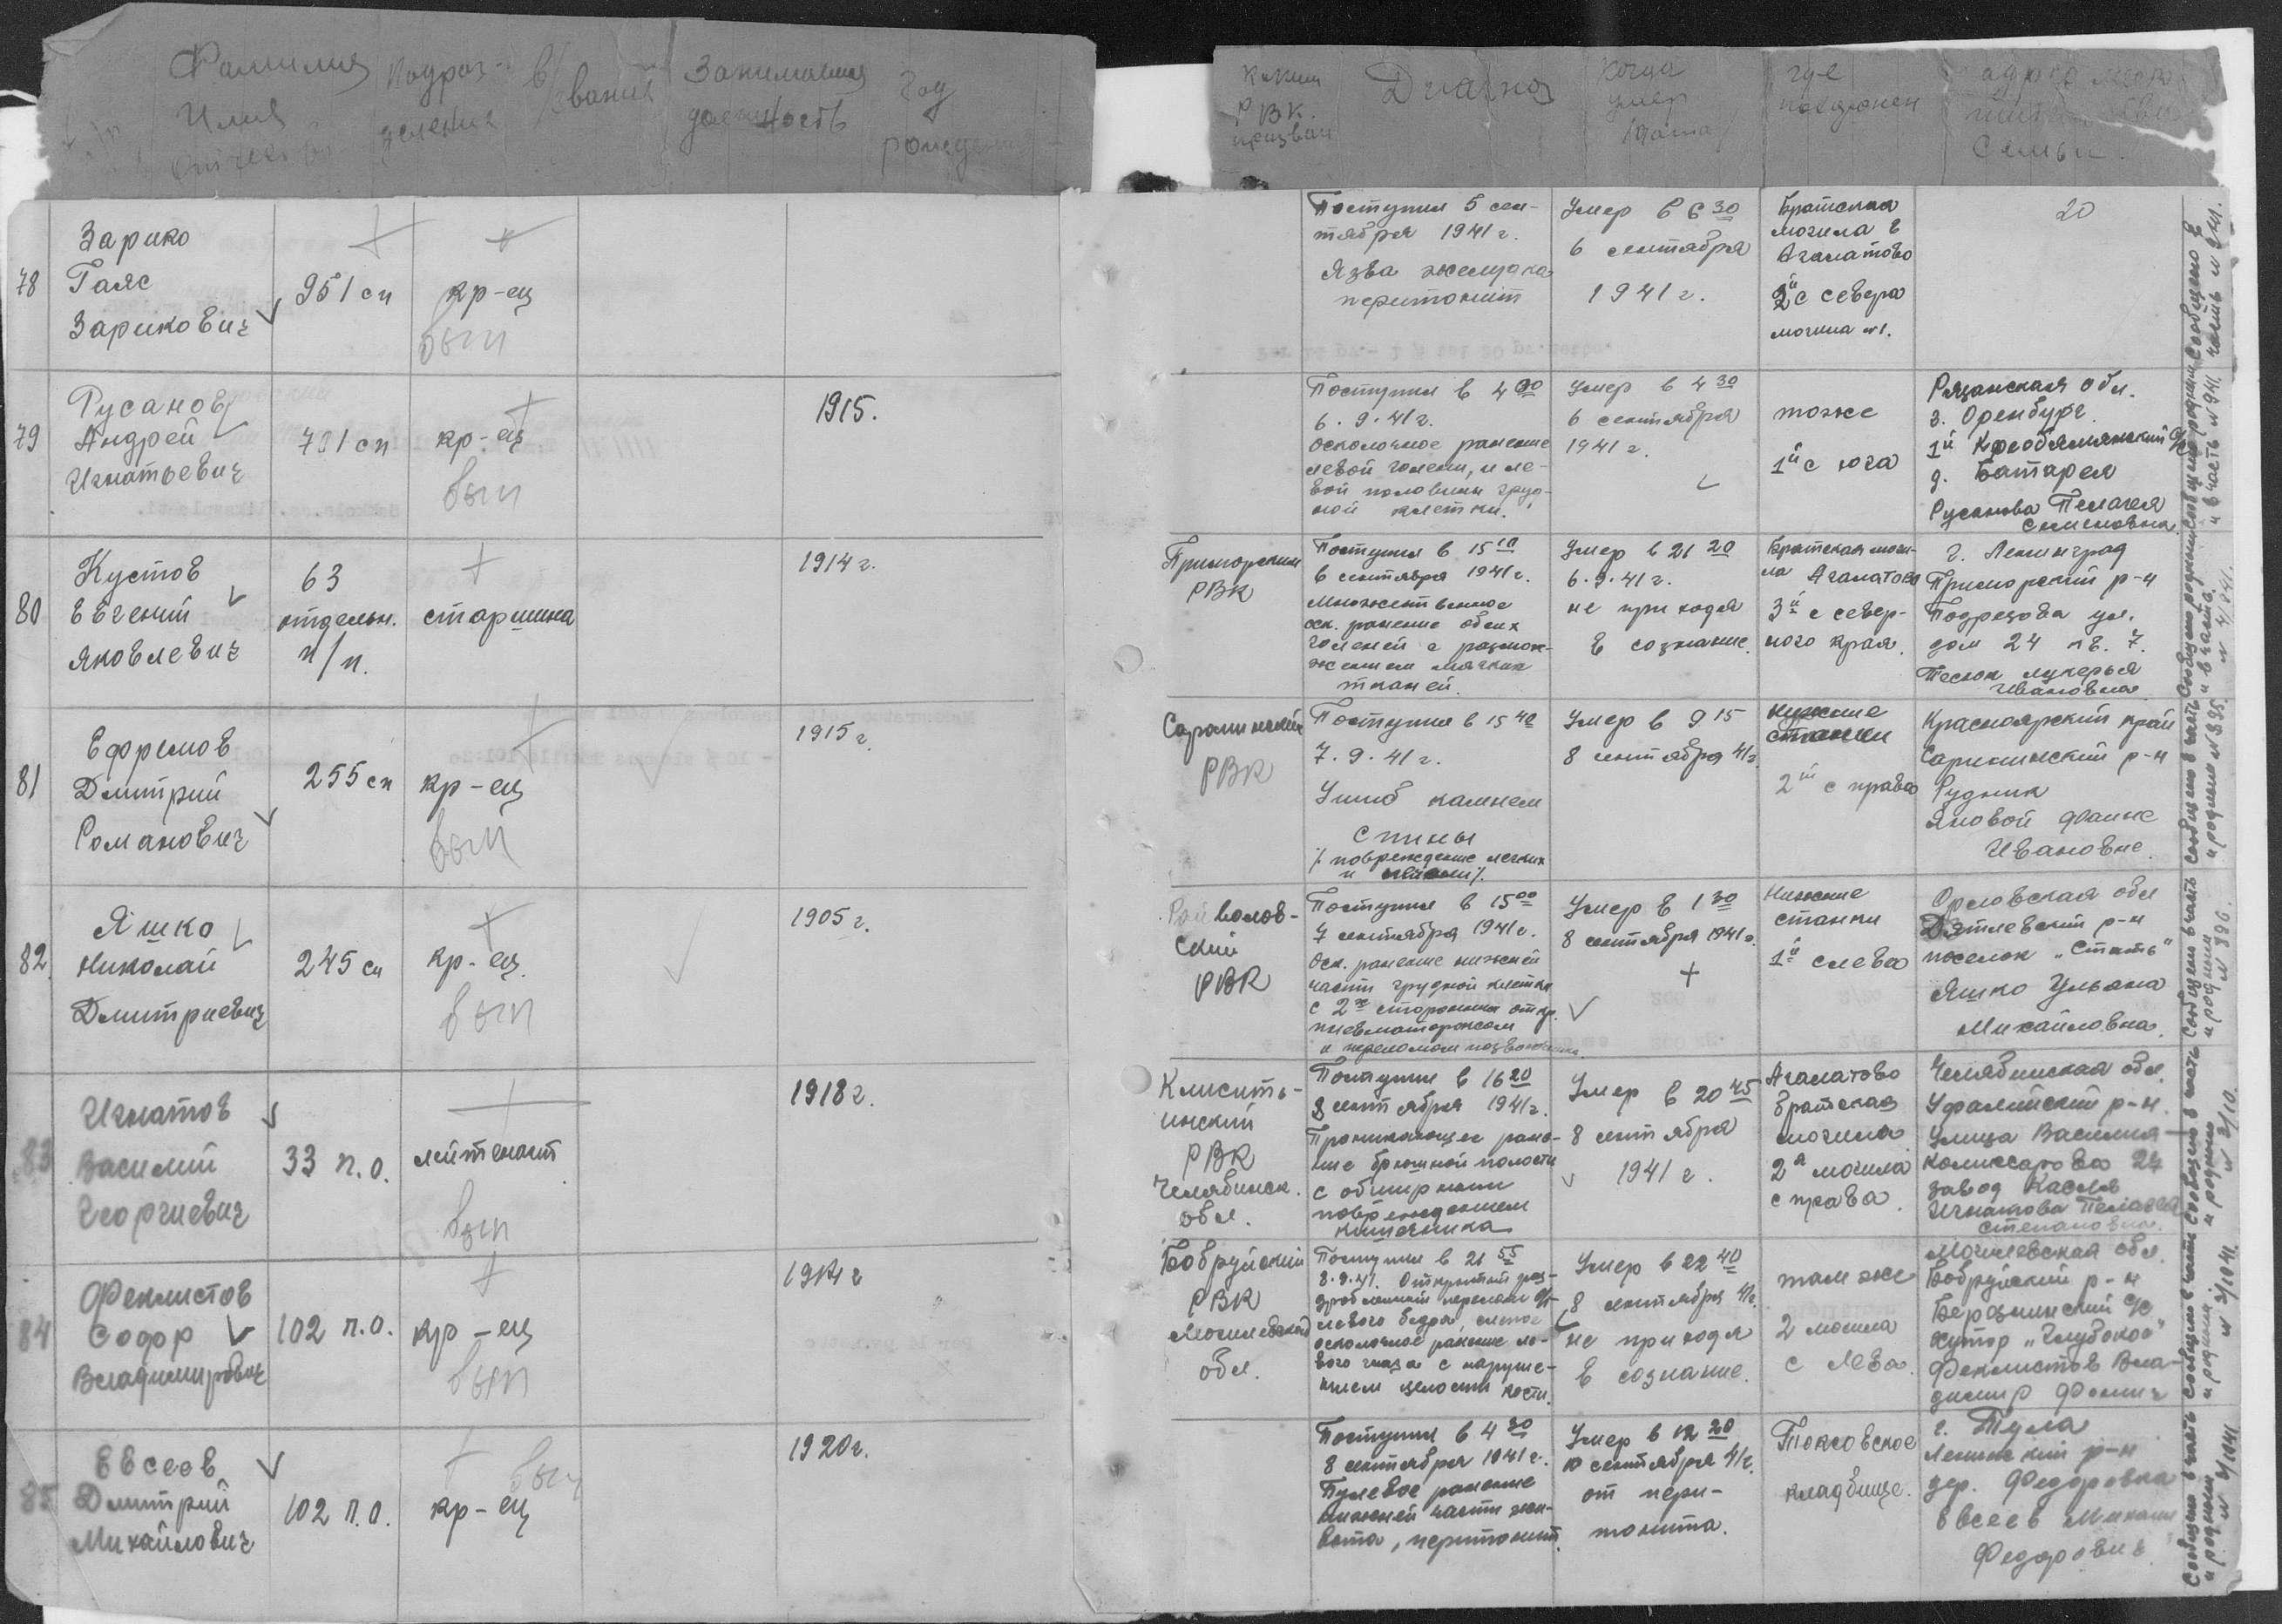 Фамилия
Имя
Отчество
Подраз-
деления
в/звания
Занимаемая
должность
Год
рождения
Каким
РВК
призван
Диагноз
Когда
умер
дата
где
похоронен
адрес
Семьи.
78
Зарико
Гаяс
Зарикович
951 сп
кр-ец
вып
Поступил 5 сен-
тября 1941 г.
Язва желудка
перитонит
Умер в 6 30
6 сентября
1941 г.
Братская
могила в
Агалатово
2й с севера
могила №1.
20
79
Русанов
Андрей
Игнатьевич
701 сп
кр-ец
вып
1915.
Поступил в 4 00
6.9.41 г.
Осколочное ранение
левой голени, и ле-
вой половины груд-
ной клетки.
Умер в 4 30
6 сентября
1941 г.
тоже
1й с юга
Рязанская обл.
г. Оренбург
1й
д. Батарея
Русанова Пелагея
Семеновна
80
Кустов
Евгений
Яковлевич
63
отдельн.
п/п.
старшина
1914 г.
Приморским
РВК
Поступил в 15 10
6 сентября 1941 г.
Множественное
оск. ранение обеих
голеней с размож-
жением мягких
тканей.
Умер в 21 20
6.9.41 г.
не приходя
в сознание.
Братская моги-
ла Агалатово
3й с север-
ного края.
г. Ленинград
Приморский р-н
Подрезова ул.
дом 24 кв. 7.
Тесюк Лукерья
Ивановна
81
Ефремов
Дмитрий
Романович
255 сп
кр-ец
вып
1915 г.
Саралинский
РВК
Поступил в 15 40
7.9.41 г.
Ушиб камнем
спины
/. повреждение легких
и
Умер в 9 15
8 сентября 41 г.
нижние
станки
2й с права
Красноярский край
Саралинский р-н
Рудник
Яновой Фаине
Ивановне.
82
Яшко
Николай
Дмитриевич
245 сп
кр-ец.
вып
1905 г.
волов-
ский
РВК
Поступил в 15 00
7 сентября 1941 г.
Оск. ранение нижней
части грудной клетки
с 2х сторонним откр.
пневматораксом
и переломом позвоночника.
Умер в 1 30
8 сентября 1941 г.
Нижние
станки
1й слева
Орловская обл
Дятлевский р-н
поселок „Стать"
Яшко Ульяна
Михайловна.
83
Игнатов
Василий
Георгиевич
33 п.о.
лейтенант
вып
1918 г.
РВК
Челябинск.
обл.
Поступил в 16 20
8 сентября 1941 г.
Проникающее ране-
ние брюшной полости
с обширным
повреждением
кишечника
Умер в 20 45
8 сентября
1941 г.
Агалатово
братская
могила
2я могила
с права.
Челябинская обл.
Уфалейский р-н.
Улица Василия
Комиссарова 24
завод Касля
Игнатова Пелагея
Степановна.
84
Феклистов
Содор
Владимирович
102 п.о.
кр-ец
вып
1914 г
Бобруйский
РВК
Могилевской
обл.
Поступил в 21 55
8.9.41. Открытый раз-
дробленный перелом
левого бедра, слепое
осколочное ранение ле-
вого глаза с наруше-
нием целости кости.
Умер в 22 40
8 сентября 41 г.
не приходя
в сознание.
там же
2 могила
с лева.
Могилевская обл.
Бобруйский р-н
Березинский с/с
хутор „Глубокое"
Феклистов Вла-
димир Фомич
85
Евсеев
Дмитрий
Михайлович
102 п.о.
кр-ец
вып
1920 г.
Поступил в 4 30
8 сентября 1941 г.
Пулевое ранение
нижней части жи-
вота, перитонит.
Умер в 12 20
10 сентября 41 г.
от пери-
тонита.
Токсовское
кладбище.
г. Тула
Ленинский р-н
дер. Федоровка
Евсеев Михаил
Федорович